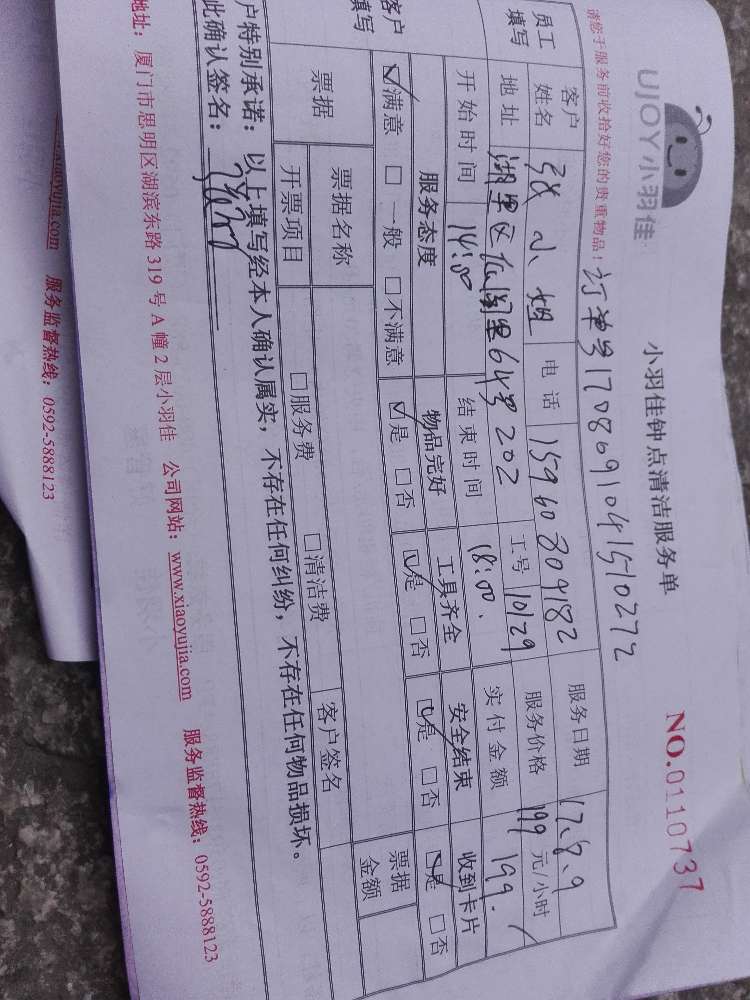 UJOY小羽佳
小羽佳钟点清洁服务单
NO.0110737
请您于服务前收拾好您的贵重物品！
订单号1708091041510272
员工填写
客户姓名 张小姐 电话 15960809182 服务日期 17.8.9
地址 湖里区仙阁里64号202 工号 10129 服务价格 199 元/小时
开始时间 14:00 结束时间 18:00. 实付金额 199.
客户填写
服务态度 物品完好 工具齐全 安全结束 收到卡片
☑满意 □一般 □不满意 ☑是 □否 ☑是 □否 ☑是 □否 ☑是 □否
票据 票据名称 客户签名 票据金额
开票项目 □服务费 □清洁费
户特别承诺：以上填写经本人确认属实，不存在任何纠纷，不存在任何物品损坏。
此确认签名：
地址：厦门市思明区湖滨东路319号A幢2层小羽佳 公司网站：www.xiaoyujia.com 服务监督热线：0592-5888123
xiaoyujia.com 服务监督热线：0592-5888123